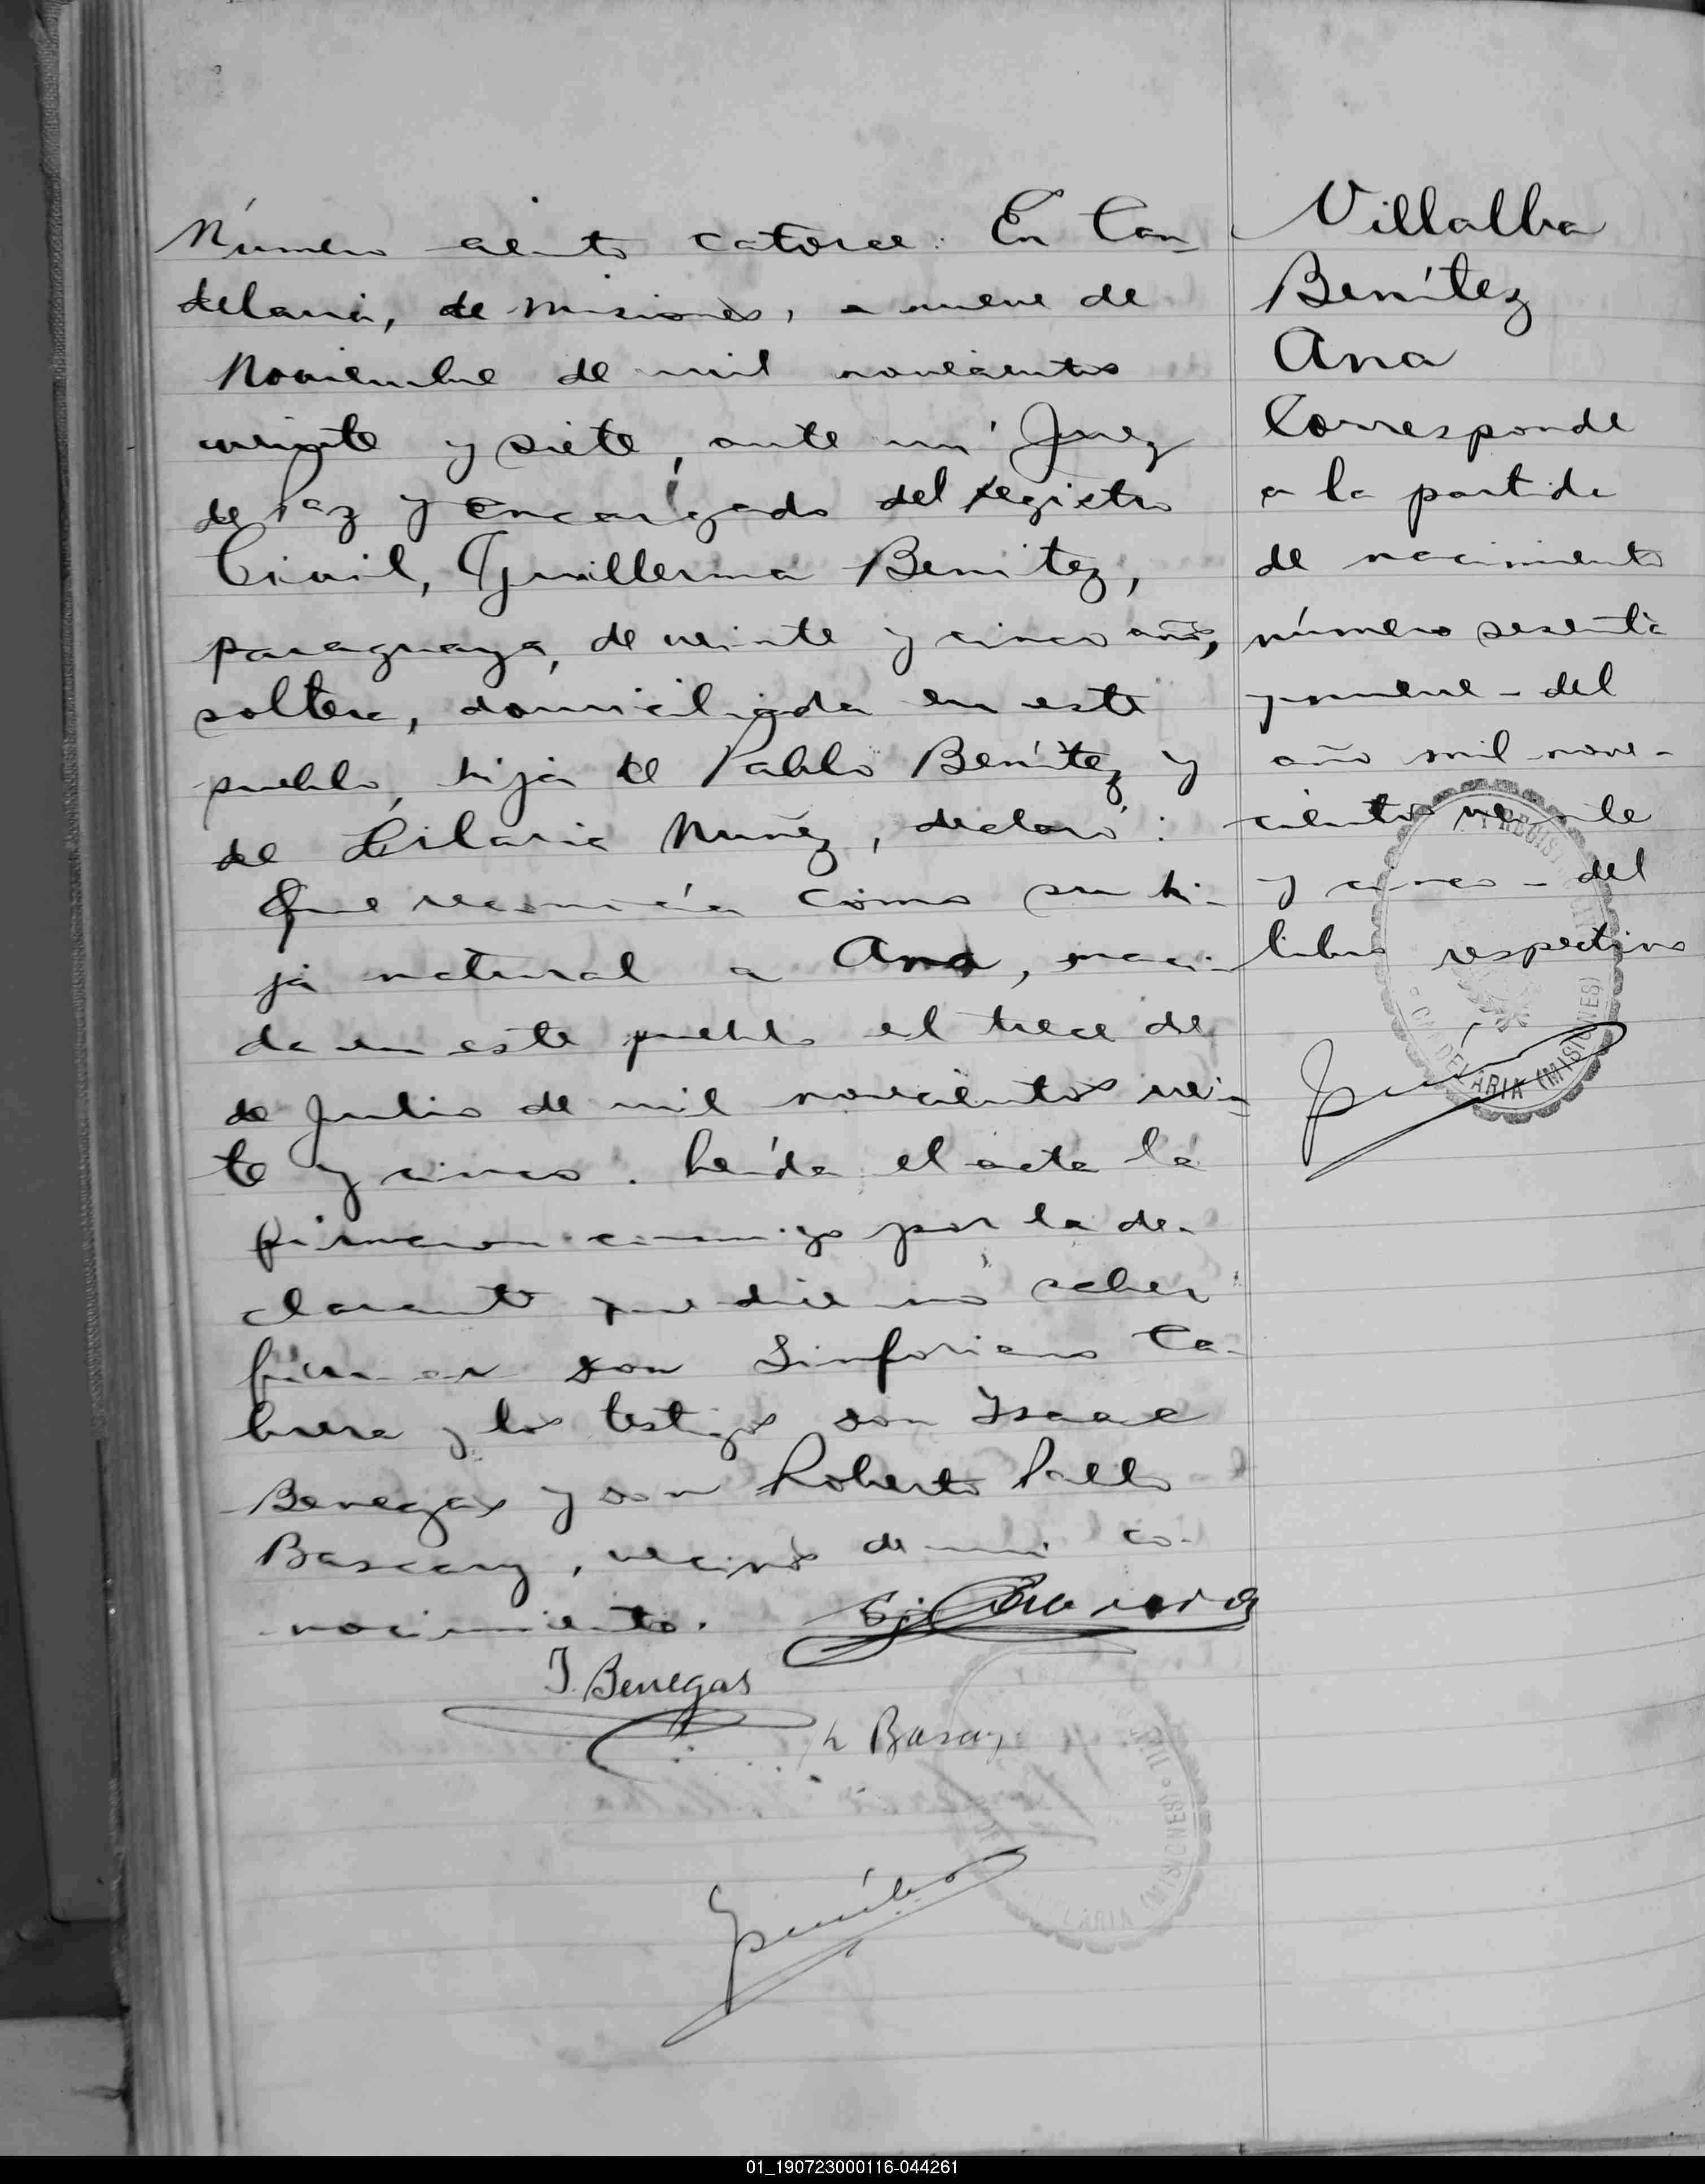 Número ciento catorce: En Can-
delaria, de Misiones, a nueve de
Noviembre de mil novecientos
veinte y siete, ante mí Juez
de Paz y encargado del registro
Civil, Guillerma Benítez,
paraguaya, de veinte y cinco años,
soltera, domiciliada en este
pueblo, hija de Pablo Benítez y
de Hilaria Nuñez, declaró:
Que reconocía como su hi-
ja natural a Ana, naci-
da en este pueblo el trece de
de Julio de mil novecientos vein-
te y cinco. Leída el acta la
firmaron conmigo por la de-
clarante que dice no saber
firmar don Sinforiano Ca-
brera y los testigos don Isaac
Benegas y don Roberto
Bascary, vecinos de mi co-
nocimiento.
I. Benegas
Villalba
Benítez
Ana
Corresponde
a la partida
de nacimiento
número sesenta
y nueve - del
año mil nove-
cientos veinte
y cinco - del
libro respectivo
CANDELARIA (MISIONES)
(MISIONES)
01_190723000116-044261